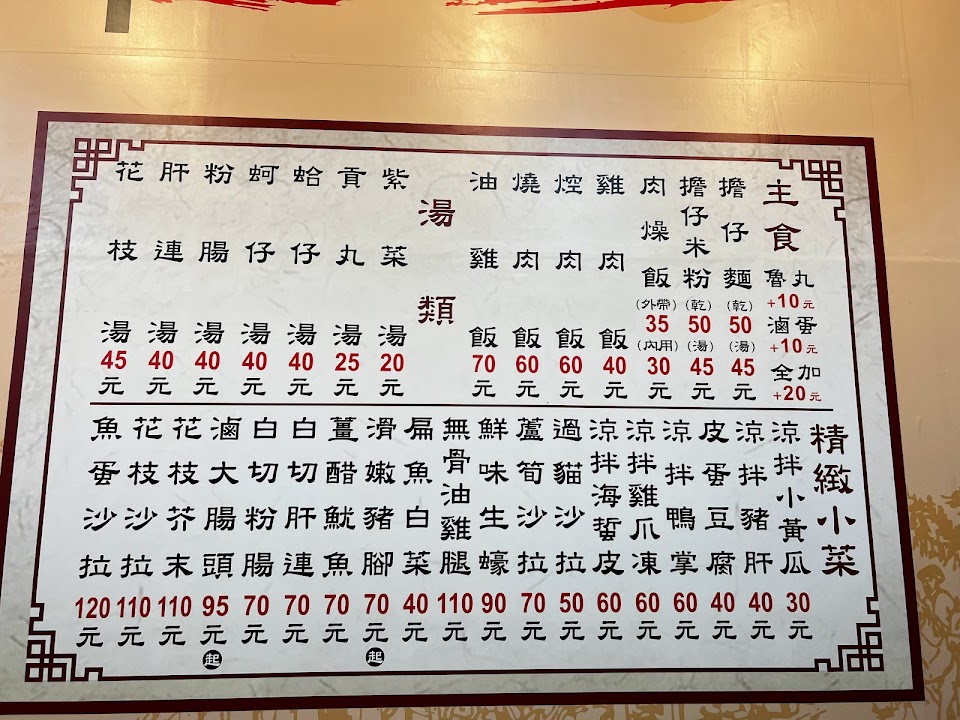 主食
魯丸
+10元
滷蛋
+10元
全加
+20元
擔仔麵
(乾)
50
(湯)
45
元
擔仔米粉
(乾)
50
(湯)
45
元
肉燥飯
(外帶)
35
(內用)
30
元
雞肉飯
40
元
焢肉飯
60
元
燒肉飯
60
元
油雞飯
70
元
湯類
紫菜湯
20
元
貢丸湯
25
元
蛤仔湯
40
元
蚵仔湯
40
元
粉腸湯
40
元
肝連湯
40
元
花枝湯
45
元
精緻小菜
涼拌小黃瓜
30
元
涼拌豬肝
40
元
皮蛋豆腐
40
元
涼拌鴨掌
60
元
涼拌雞爪凍
60
元
涼拌海蜇皮
60
元
過貓沙拉
50
元
蘆筍沙拉
70
元
鮮味生蠔
90
元
無骨油雞腿
110
元
扁魚白菜
40
元
滑嫩豬腳
70
元
起
薑醋魷魚
70
元
白切肝連
70
元
白切粉腸
70
元
滷大腸頭
95
元
起
花枝芥末
110
元
花枝沙拉
110
元
魚蛋沙拉
120
元